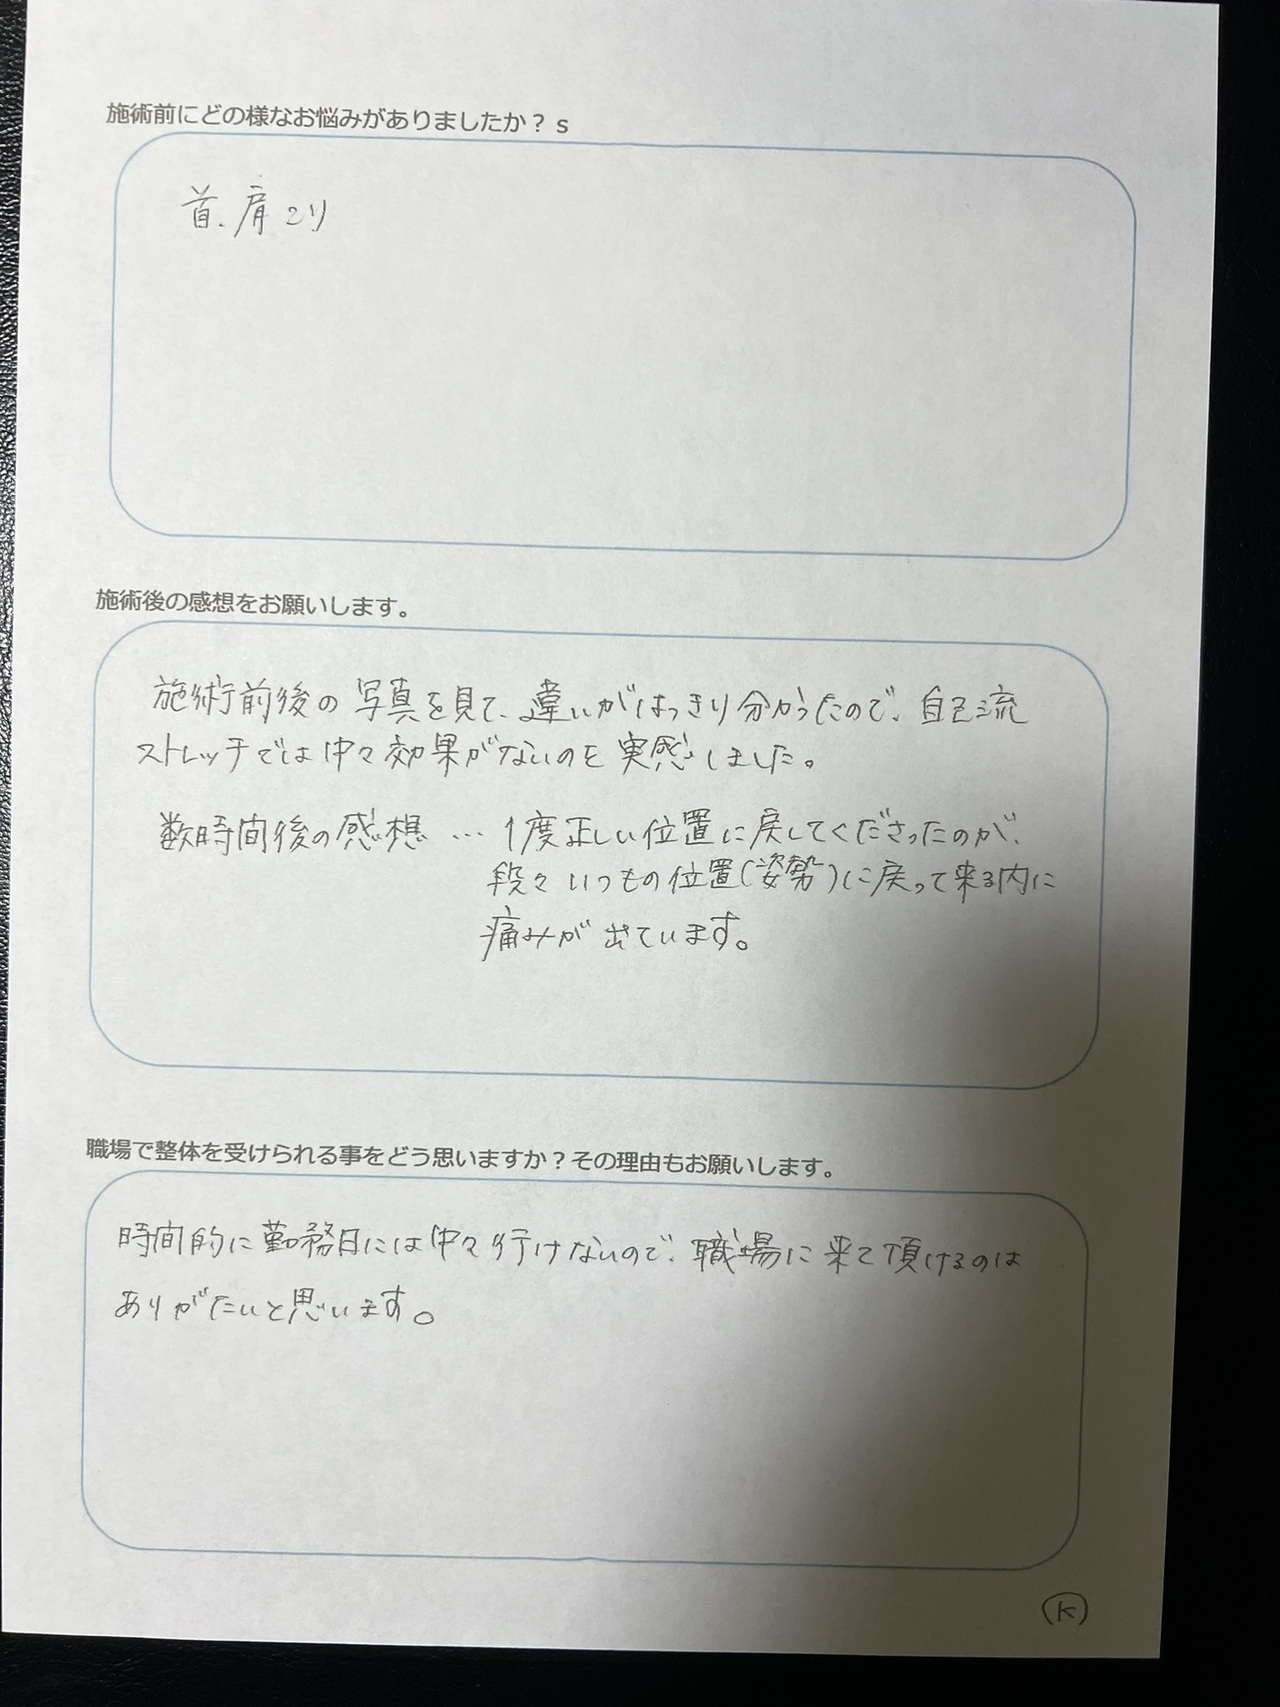 施術前にどの様なお悩みがありましたか？ s
首、肩こり
施術後の感想をお願いします。
施術前後の写真を見て、違いがはっきり分かったので、自己流
ストレッチでは中々効果がないのを実感しました。
数時間後の感想 … 1度正しい位置に戻してくださったのが、
段々いつもの位置(姿勢)に戻って来る内に
痛みが出ています。
職場で整体を受けられる事をどう思いますか？その理由もお願いします。
時間的に勤務日には中々行けないので、職場に来て頂けるのは
ありがたいと思います。
K